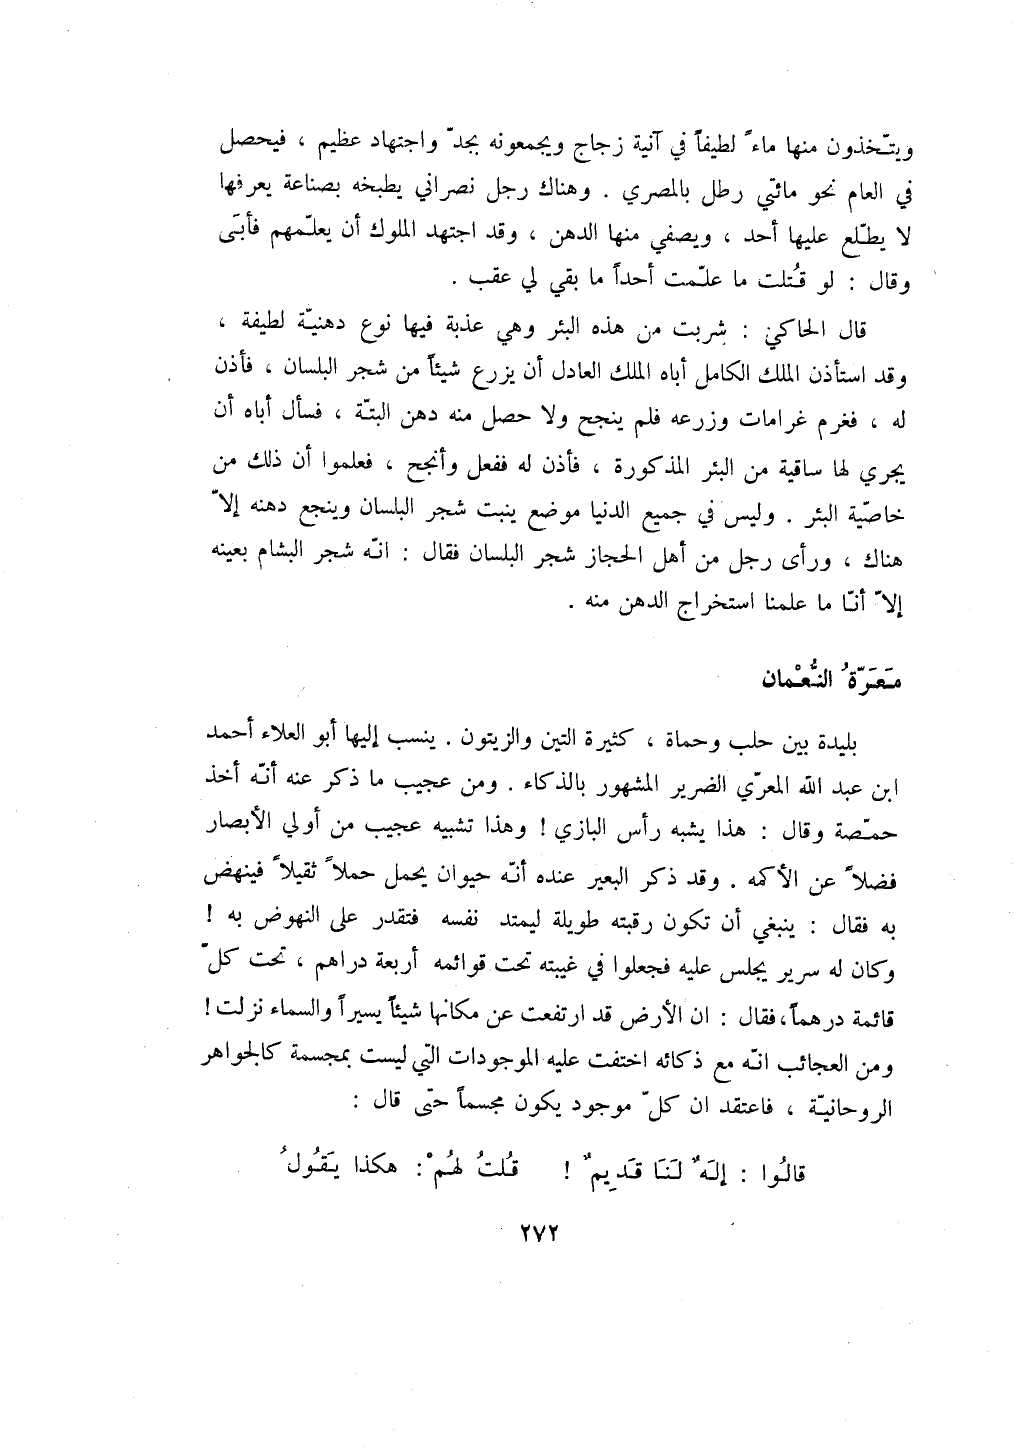 ويتّخذون منها ماءً لطيفاً في آنية زجاج ويجمعونه بجدّ واجتهاد عظيم ، فيحصل
في العام نحو مائتي رطل بالمصري . وهناك رجل نصراني يطبخه بصناعة يعرفها
لا يطّلع عليها أحد ، ويصفي منها الدهن ، وقد اجتهد الملوك أن يعلّمهم فأبَى
وقال : لو قُتلت ما علّمت أحداً ما بقي لي عقب .
قال الحاكي : شربت من هذه البئر وهي عذبة فيها نوع دهنيّة لطيفة ،
وقد استأذن الملك الكامل أباه الملك العادل أن يزرع شيئاً من شجر البلسان ، فأذن
له ، فغرم غرامات وزرعه فلم ينجح ولا حصل منه دهن البتّة ، فسأل أباه أن
يجري لها ساقية من البئر المذكورة ، فأذن له ففعل وأنجح ، فعلموا أن ذلك من
خاصّية البئر . وليس في جميع الدنيا موضع ينبت شجر البلسان وينجع دهنه إلاّ
هناك ، ورأى رجل من أهل الحجاز شجر البلسان فقال : انّه شجر البشام بعينه
إلاّ أنّا ما علمنا استخراج الدهن منه .
مَعَرّةُ النُّعْمان
بليدة بين حلب وحماة ، كثيرة التين والزيتون . ينسب إليها أبو العلاء أحمد
ابن عبد الله المعرّي الضرير المشهور بالذكاء . ومن عجيب ما ذكر عنه أنّه أخذ
حمّصة وقال : هذا يشبه رأس البازي ! وهذا تشبيه عجيب من أولي الأبصار
فضلاً عن الأكمه . وقد ذكر البعير عنده أنّه حيوان يحمل حملاً ثقيلاً فينهض
به فقال : ينبغي أن تكون رقبته طويلة ليمتد نفسه فتقدر على النهوض به !
وكان له سرير يجلس عليه فجعلوا في غيبته تحت قوائمه أربعة دراهم ، تحت كلّ
قائمة درهماً، فقال : ان الأرض قد ارتفعت عن مكانها شيئاً يسيراً والسماء نزلت !
ومن العجائب انّه مع ذكائه اختفت عليه الموجودات التي ليست بمجسمة كالجواهر
الروحانيّة ، فاعتقد ان كلّ موجود يكون مجسماً حتّى قال :
قالُوا : إلَهٌ لَنَا قَدِيمٌ ! قُلتُ لهُمْ : هكذا يَقُولُ
٢٧٢